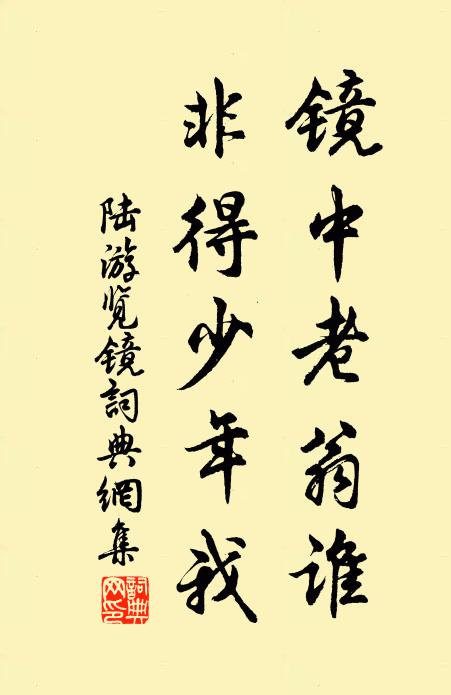 镜中老翁谁
非得少年我
陆游览镜詞典網集
詞典网印